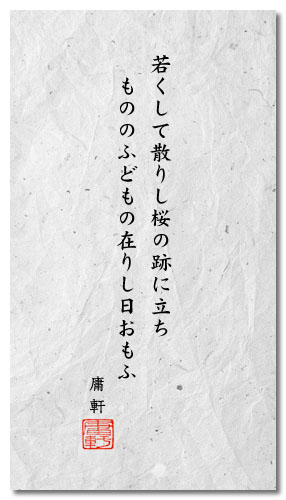 若くして散りし桜の跡に立ち
もののふどもの在りし日おもふ
庸軒
庸軒